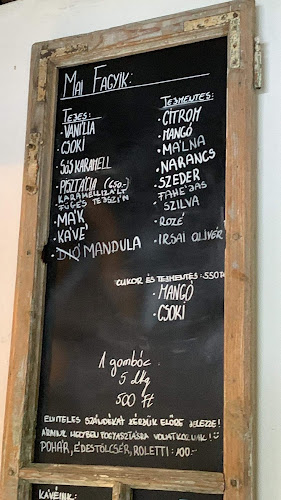 MAI FAGYIK:
TEJES:
• VANÍLIA
• CSOKI
• SÓS KARAMELL
• PISZTÁCIA (650.-)
KARAMELLIZÁLT
FÜGÉS TEJSZÍN
• MÁK
• KÁVÉ
• DIÓ MANDULA
TEJMENTES:
• CITROM
• MANGÓ
• MÁLNA
• NARANCS
• SZEDER
• FAHÉJAS
SZILVA
• ROZÉ
• IRSAI OLIVÉR
CUKOR ÉS TEJMENTES: 550 Ft
• MANGÓ
• CSOKI
1 gombóc
5 dkg
500 Ft
ELVITELES SZÁNDÉKÁT KÉRJÜK ELŐRE JELEZZE!
ÁRAINK HELYBEN FOGYASZTÁSRA VONATKOZNAK!
POHÁR, ÉDESTÖLCSÉR, ROLETTI: 100.-
KÁVÉINK: